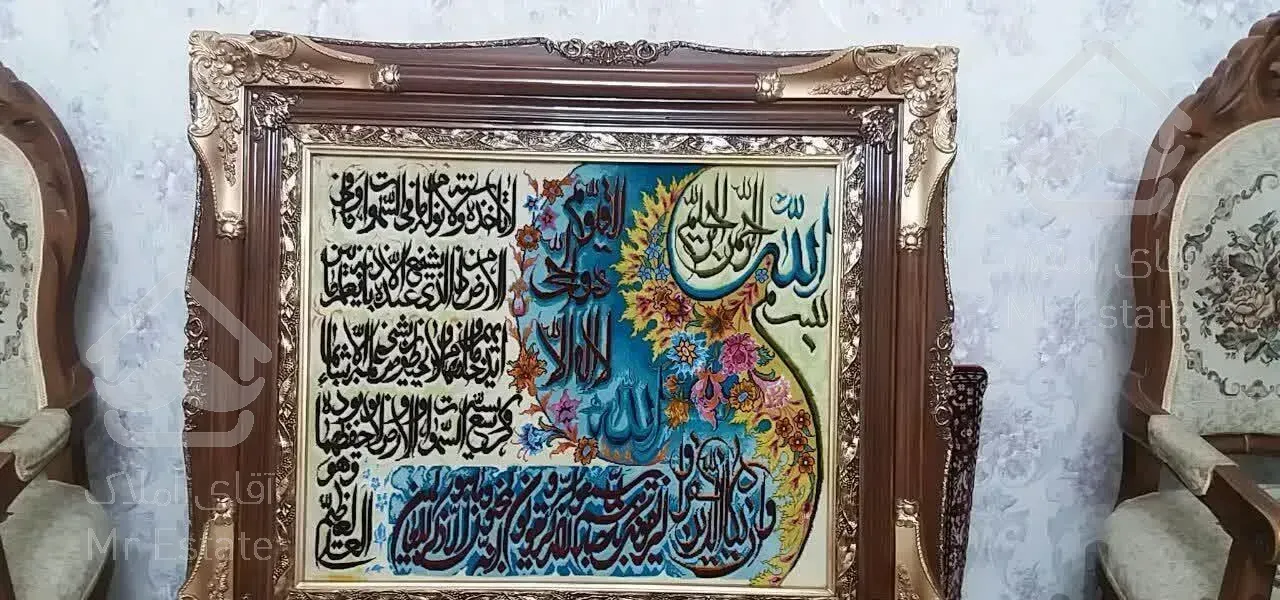 بسم الله الرحمن الرحيم
الله
لا اله الا
هو الحي
القيوم
لا تأخذه سنة ولا نوم له ما في السموات وما في
الارض من ذا الذي يشفع عنده الا باذنه يعلم ما بين
ايديهم وما خلفهم ولا يحيطون بشيء من علمه الا بما شاء
وسع كرسيه السموات والارض ولا يؤده حفظهما
وهو
العلي العظيم
وان يكاد الذين كفروا
ليزلقونك بابصارهم لما سمعوا الذكر ويقولون انه لمجنون وما هو الا ذكر للعالمين
آقای املاک
Mr Estate
آقای املاک
Mr Estate